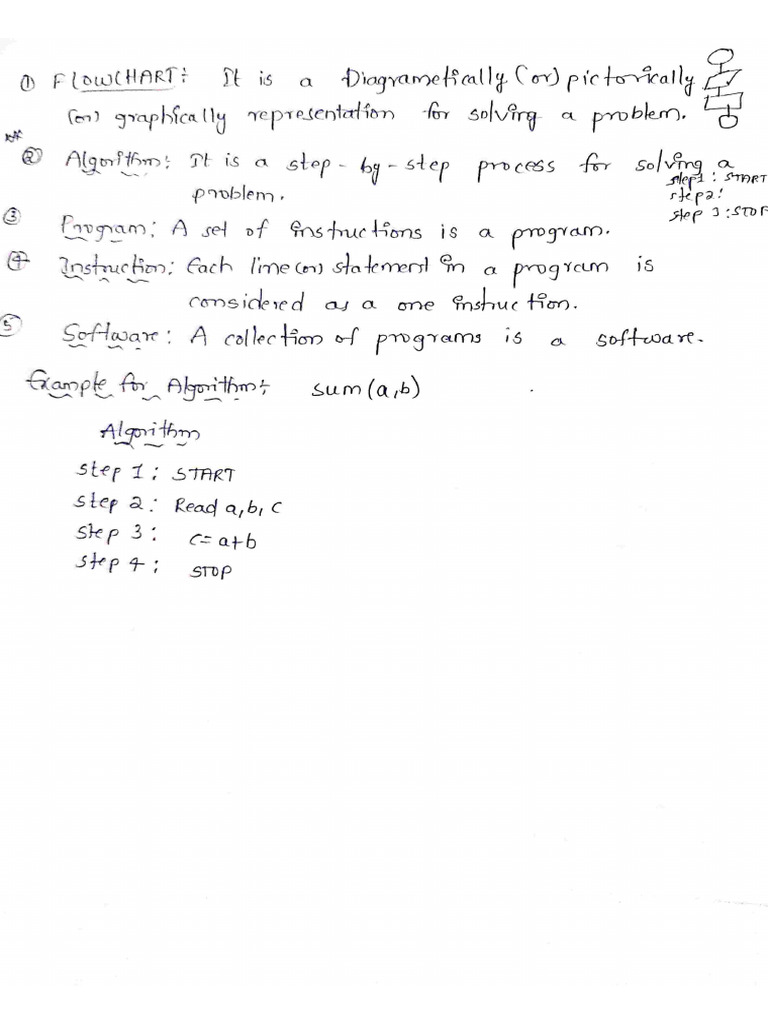 ① FLOWCHART: It is a Diagrametically (or) pictorically
(or) graphically representation for solving a problem.
** ② Algorithm: It is a step-by-step process for solving a
problem.
step1: START
step2:
step 3: STOP
③ Program: A set of instructions is a program.
④ Instruction: Each line (or) statement in a program is
considered as a one instruction.
⑤ Software: A collection of programs is a software.
Example for Algorithm: sum(a,b)
Algorithm
step 1: START
step 2: Read a, b, c
step 3: c=a+b
step 4: STOP